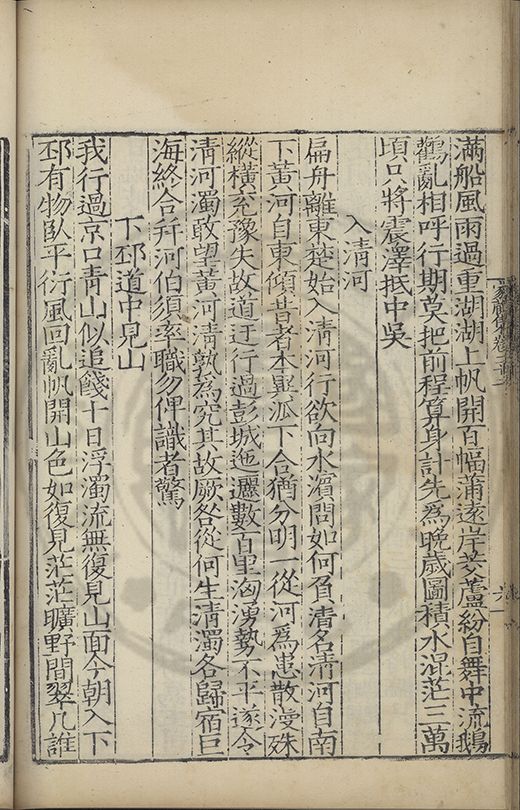 滿船風雨過重湖湖上帆開百幅蒲遠岸茭蘆紛自舞中流鵝
鸛亂相呼行期莫把前程算身計先為晚歲圖積水混茫三萬
頃只將震澤抵中吳
入清河
扁舟離東楚始入清河行欲向水濱問如何負清名清河自南
下黃河自東傾昔者本異派下合猶分明一從河為患散漫殊
縱橫兗豫失故道迂行過彭城迤邐數百里洶湧勢不平遂令
清河濁敢望黃河清孰為究其故厥咎從何生清濁各歸宿巨
海終合幷河伯須率職勿俾識者驚
下邳道中見山
我行過京口靑山似追餞十日浮濁流無復見山面今朝入下
邳有物臥平衍風回亂帆開山色如復見茫茫曠野間翠几誰
卷